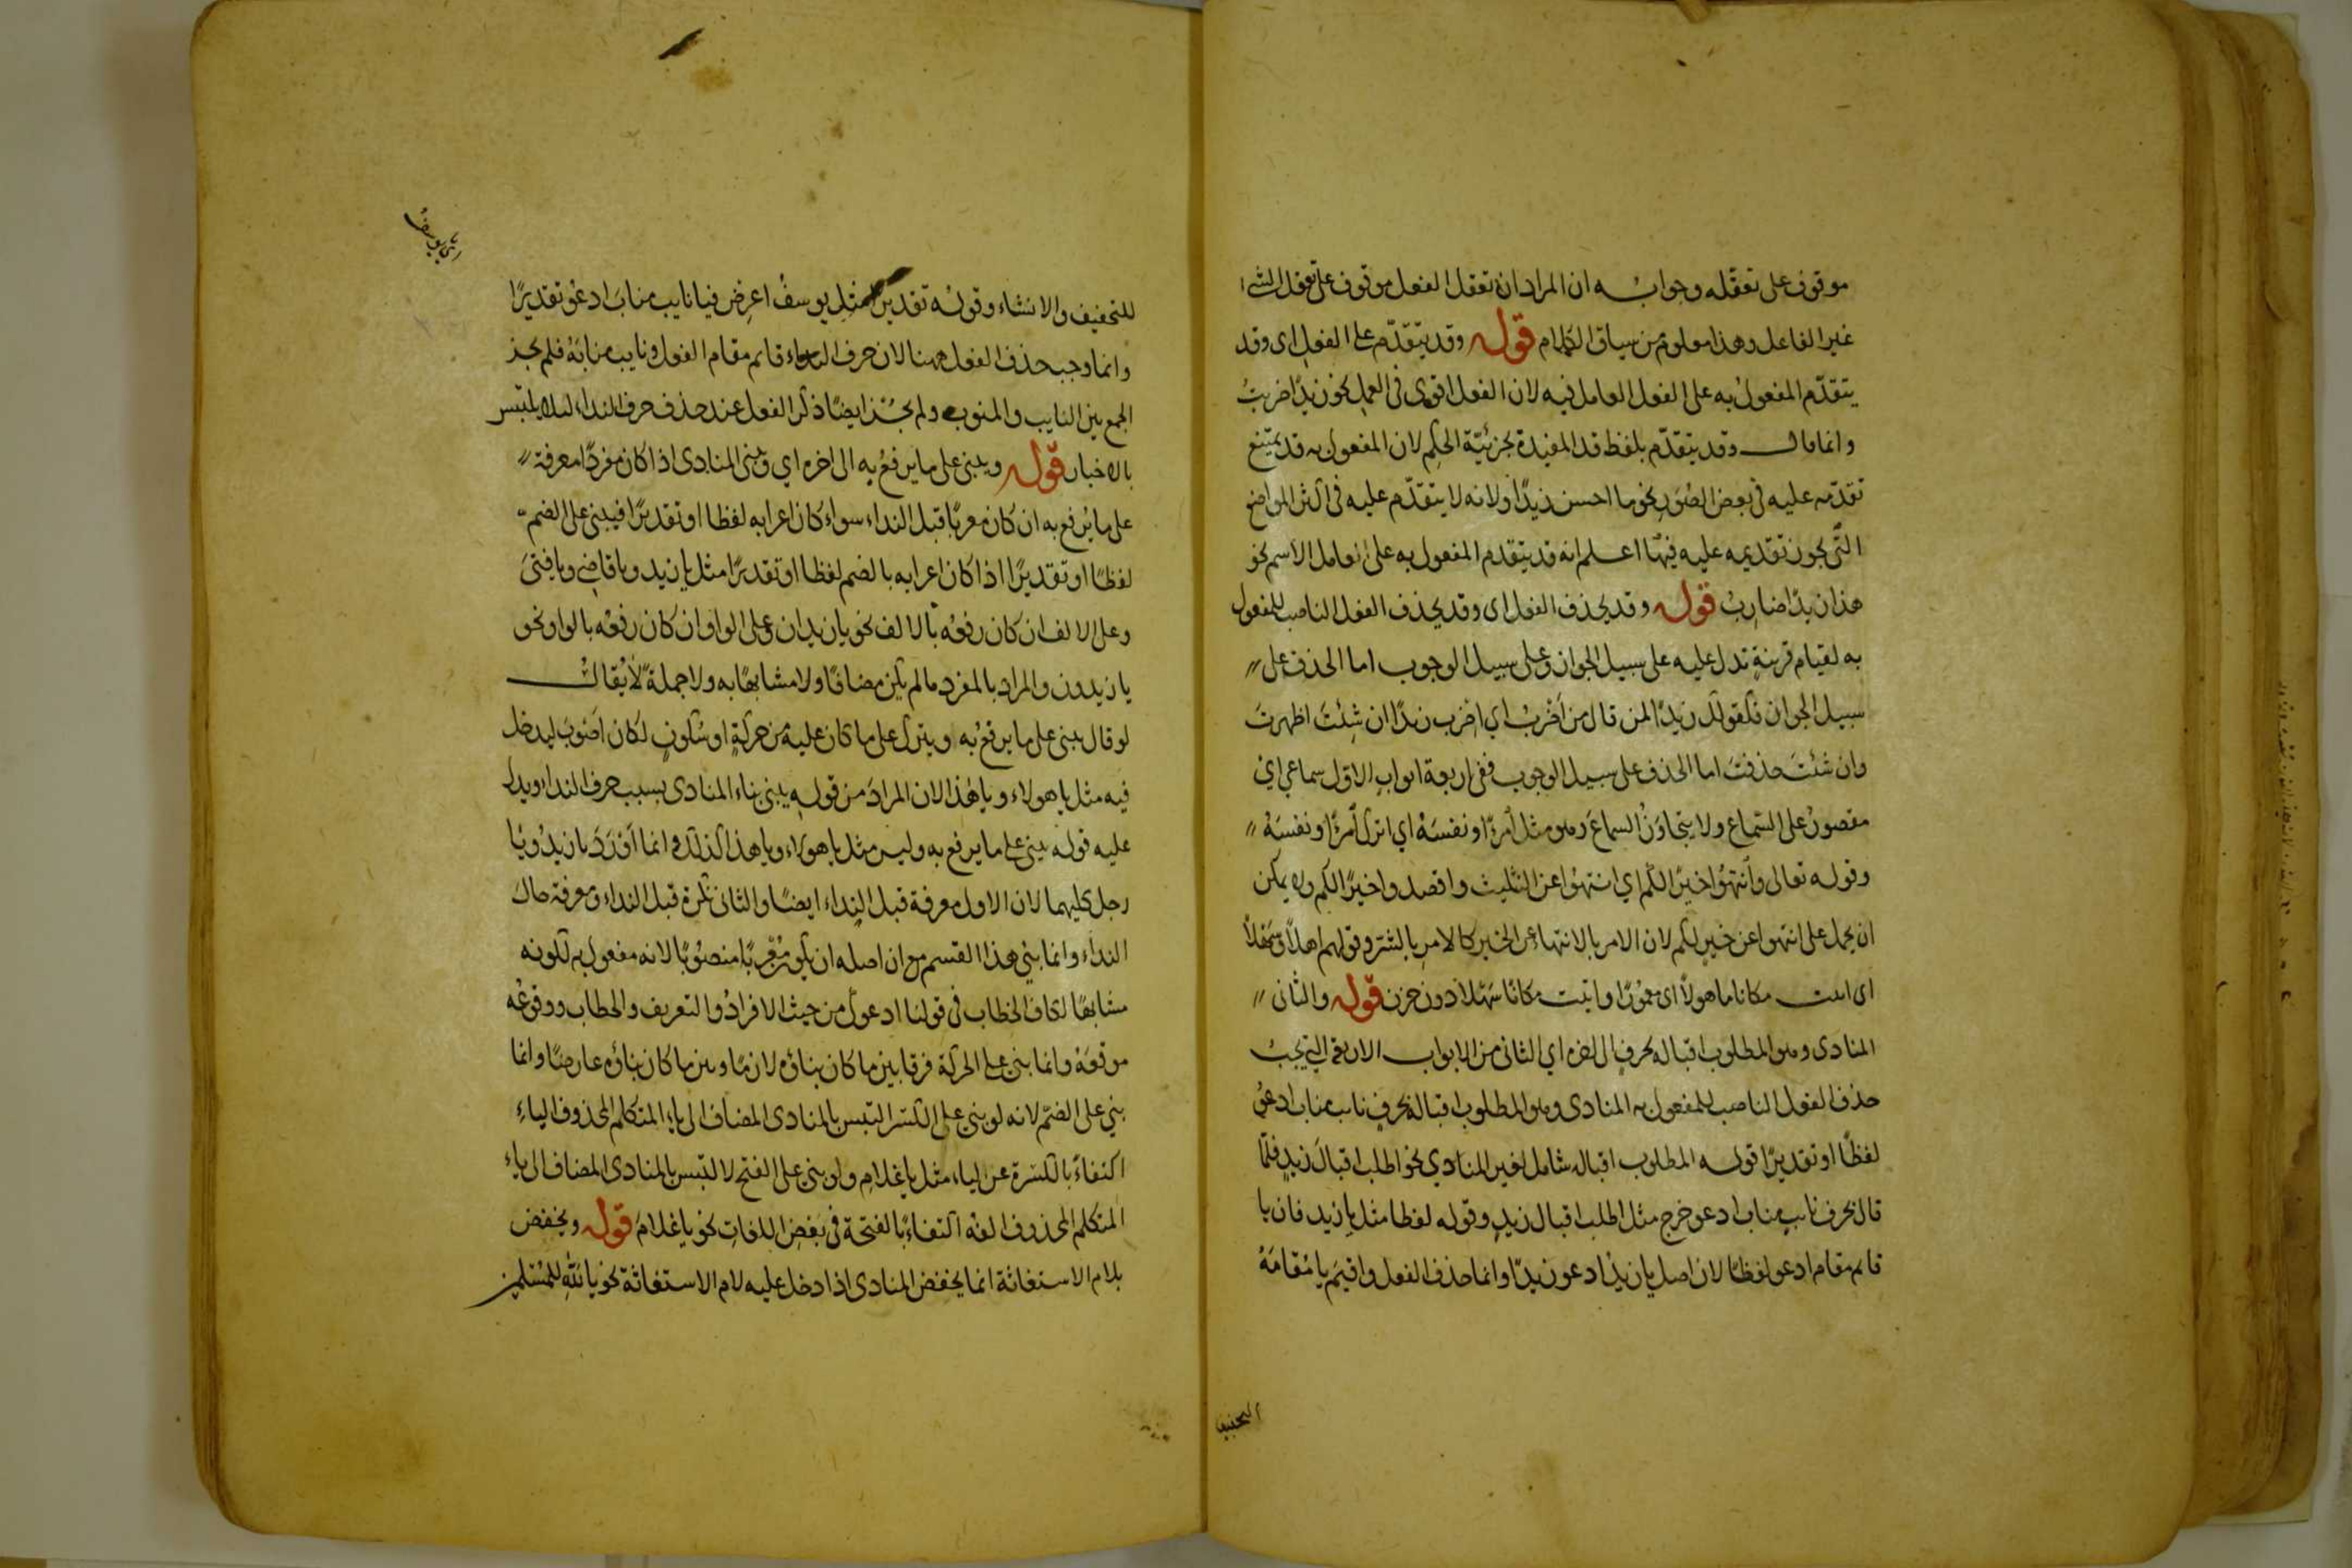 موقوف على تعقله وجوابه ان المراد ان تعقل الفعل موقوف على تعقل الشئ
غير الفاعل وهذا معلوم من سياق الكلام قوله وقد يتقدّم على الفعل اى وقد
يتقدّم المفعول به على الفعل العامل فيه لان الفعل اقوى فى العمل نحو زيدًا ضربتُ
وانما قال وقد يتقدّم بلفظ قد المفيدة بجزئيّة الحكم لان المفعول به قد يمتنع
تقدّمه عليه فى بعض الصُوَرِ نحو ما احسن زيدًا ولانه لا يتقدّم عليه فى اكثر المواضع
التّى يجوز تقديمه عليه فيها اعلم انه قد يتقدم المفعول به على العامل الاسم نحو
هذا زيدًا ضاربٌ قوله وقد يحذف الفعل اى وقد يحذف الفعل الناصب للمفعول
به لقيام قرينةٍ تدل عليه على سبيل الجواز وعلى سبيل الوجوب اما الحذف على
سبيل الجواز فكقولك زيدًا لمن قال من اَضْرِبُ اي اضرب زيدًا ان شِئتَ اظهرتَ
وان شئتَ حذفتَ اما الحذف على سبيل الوجوب ففى اربعة ابواب الاوّل سماعي اي
مقصورٌ على السّماع ولا يتجاوَزُ السماعَ وهو مثل امرءًا ونفسَهُ اي اترك امرءًا ونفسَهُ
وقوله تعالى وانتهُوْا خيرًا لكم اي انتهُوا عن التثليث واقصدوا خيرًا لكم ولا يمكن
ان يحمل على انتهوا عن خيرٍ لكم لان الامر بالانتهاء عن الخير كالامر بالشر وقولهم اهلاً وسَهْلاً
اى اتيت مكانا ماهولاً اى معمورًا واتيت مكانًا سَهْلاً دون حزن قوله والثانى
المنادى وهو المطلوب اقباله بحرفٍ الى اخره اي الثانى من الابواب الاربعة التي يجبُ
حذف الفعل الناصب للمفعول به المنادى وهو المطلوب اقباله بحرفٍ نايب مناب ادعوُ
لفظًا او تقديرًا قوله المطلوب اقباله شامل لغير المنادي نحو اطلب اقبالَ زيدٍ فلمّا
قال بحرف نايبٍ مناب ادعو خرج مثل اطلب اقبال زيدٍ وقوله لفظا مثل يا زيد فان يا
قايم مقام ادعو لفظًا لان اصل يا زيدُ ادعو زيدًا وانما حذف الفعل واقيمَ يا مُقامَهُ
للتخفيف والانشاء وقوله تقديرًا مثل يوسفُ اعرض فيا نايب منابَ ادعوُ تقديرًا
وانما وجب حذف الفعل ههنا لان حرف النداء قايم مقام الفعل ونايب منابَهُ فلم يجز
الجمع بين النايب والمنوب ولم يجُز ايضًا ذكر الفعل عند حذف حرف النداء لئلا يلتبس
بالاخبار قوله ويبنى على ما يرفعُ به الى اخره اي ويبنى المنادى اذا كان مفردًا معرفة
على ما يُرفع به ان كان معربًا قبل النداء سواءٌ كان اعرابه لفظا او تقديرًا فيبنى على الضم
لفظًا او تقديرًا اذا كان اعرابه بالضم لفظا او تقديرًا مثل يا زيد ويا قاضي ويا فتىَ
وعلى الالف ان كان رفعُه بالالف نحو يا زيدان وعلى الواو ان كان رفعُه بالواو نحو
يا زيدون والمراد بالمفرد ما لم يكن مضافًا ولا مشابهًا به ولا جملةً لا يُقالُ
لو قال يبنى على ما يرفعُ به ويترك على ما كان عليه من حركةٍ او سُكونٍ لكان اَصْوَبَ ليدخل
فيه مثل يا هولاء ويا هٰذا لان المرادَ من قوله يبنى بناء المنادى بسبب حرف النداء ويدل
عليه قوله يبنى على ما يرفع به وليس مثل يا هولاء ويا هذا كذلك وانما اَوْرَدَ يا زيدُ ويا
رجل كليهما لان الاول معرفة قبل النداء ايضًا والثانى نكرة قبل النداء ومعرفة حالَ
النداء وانما بني هذا القسم مع ان اصله ان يكون معربًا منصوُبًا لانه مفعول به لكونه
مشابهًا لكاف الخطاب فى قولنا ادعوك من حيث الافرادُ والتعريف والخطاب ووقوعُه
موقعَهُ وانما بنى على الحركة فرقا بين ما كان بناؤه لازمًا وبين ما كان بناؤه عارضًا وانما
بني على الضمّ لانه لو بنى على الكسر التبس بالمنادى المضاف الى ياء المتكلم المحذوف الياءِ
اكتفاءً بالكسرة عن الياء مثل يا غلامِ ولو بنى على الفتح لالتبس بالمنادى المضاف الى ياء
المتكلم المحذوف الفُه اكتفاءً بالفتحة فى بَعْضِ اللغاتِ نحو يا غلامَ قوله ويخفض
بلام الاستغاثة انما يخفض المنادى اذا دخل عليه لام الاستغاثة نحو يا للّٰهِ للمُسْلمين